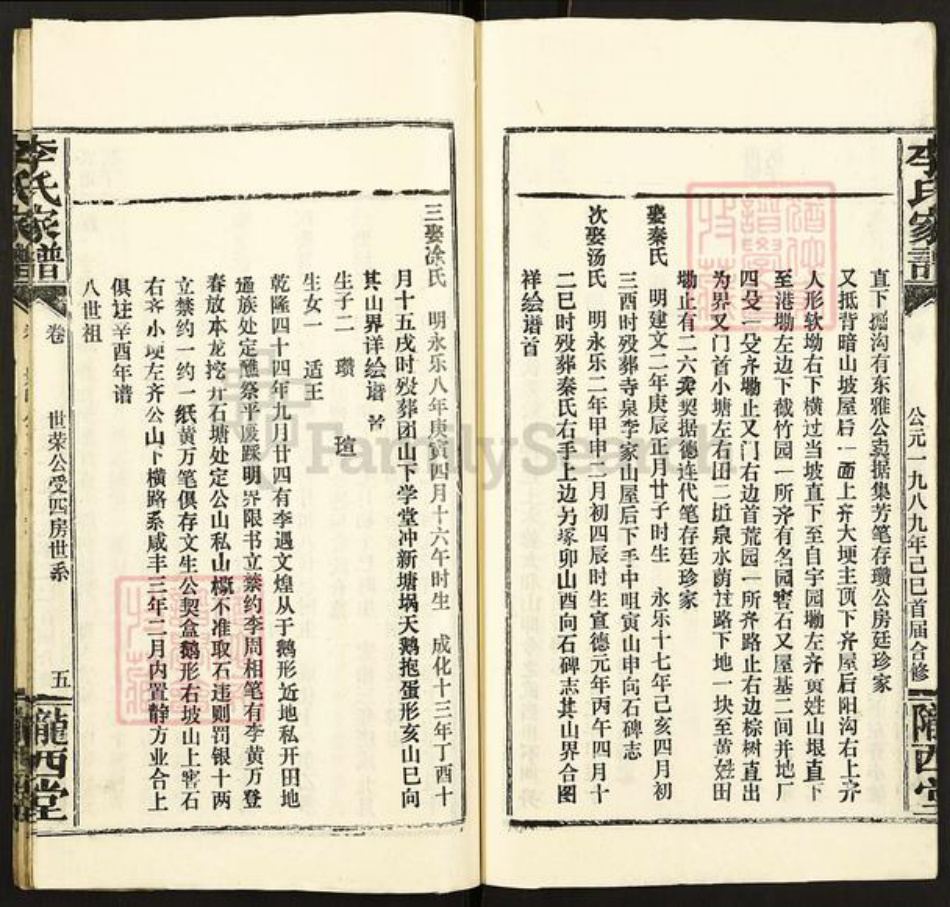 李氏家谱
公元一九八九年己巳首届合修
陇西堂
直下搵沟有东雅公卖据集芳笔存瓒公房廷珍家
又抵背暗山坡屋后一面上齐大埂主顶下齐屋后阳沟右上齐
人形软坳右下横过当坡直下至自宇园墈左齐黄姓山垠直下
至港墈左边下截竹园一所齐有名园窖石又屋基二间并地厂
四殳一殳齐墈止又门右边首荒园一所齐路止右边棕树直出
为界又门首小塘左右田二坵泉水荫注路下地一块至黄姓田
墈止有二六卖契据德连代笔存廷珍家
娶秦氏 明建文二年庚辰正月廿子时生 永乐十七年己亥四月初
三酉时殁葬寺泉李家山屋后下手中咀寅山申向石碑志
次娶汤氏 明永乐二年甲申二月初四辰时生宣德元年丙午四月十
二巳时殁葬秦氏右手上边另塚卯山酉向石碑志其山界合图
祥绘谱首
三娶涂氏 明永乐八年庚寅四月十六午时生 成化十三年丁酉十
月十五戌时殁葬团山下学堂冲新塘埚天鹅抱蛋形亥山巳向
其山界详绘谱首
生子二 瓒 瑄
生女一 适王
乾隆四十四年九月廿四有李遇文煌从于鹅形近地私开田地
通族处定醮祭平废踩明界限书立禁约李周相笔有李黄万登
春放本龙挖开石塘处定公山私山概不准取石违则罚银十两
立禁约一约一纸黄万笔俱存文生公契盒鹅形右坡山上窖石
右齐小埂左齐公山下横路系咸丰三年二月内置静方业合上
俱注辛酉年谱
八世祖
李氏家谱
卷
世荣公受四房世系
五
陇西堂
FamilySearch